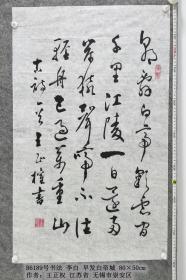 朝辞白帝彩云间
千里江陵一日还两
岸猿聲啼不住
輕舟已過萬重山
古詩一首王正權書
B6189号书法 李白 早发白帝城 80×50cm
作者：王正权 江苏省 无锡市崇安区